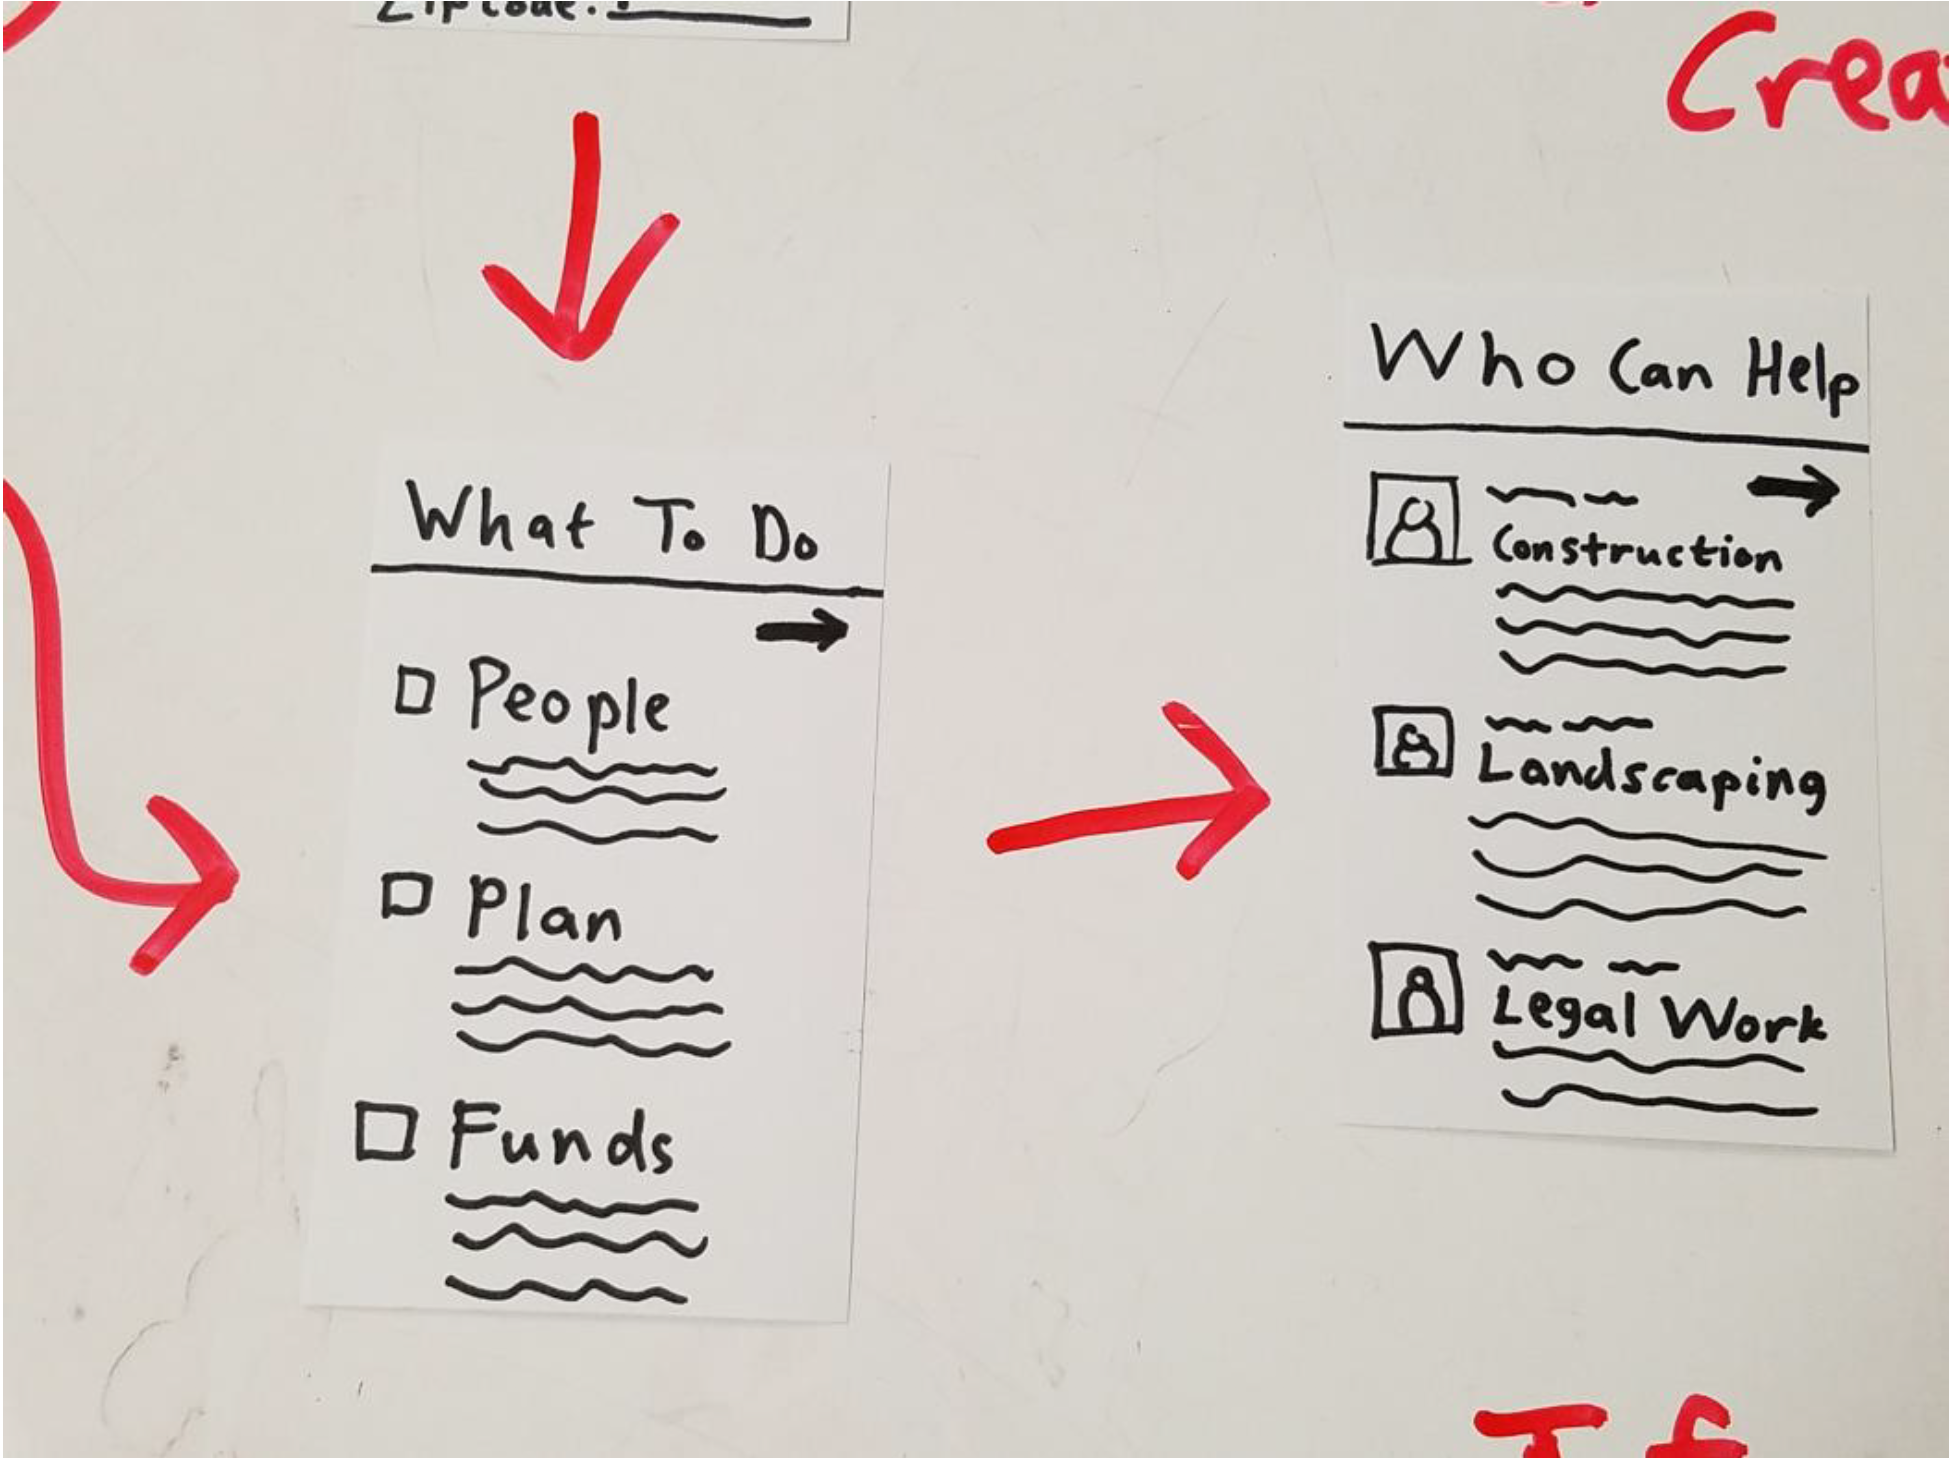 Zipcode:
Crea
What To Do
People
Plan
Funds
Who Can Help
Construction
Landscaping
Legal Work
If